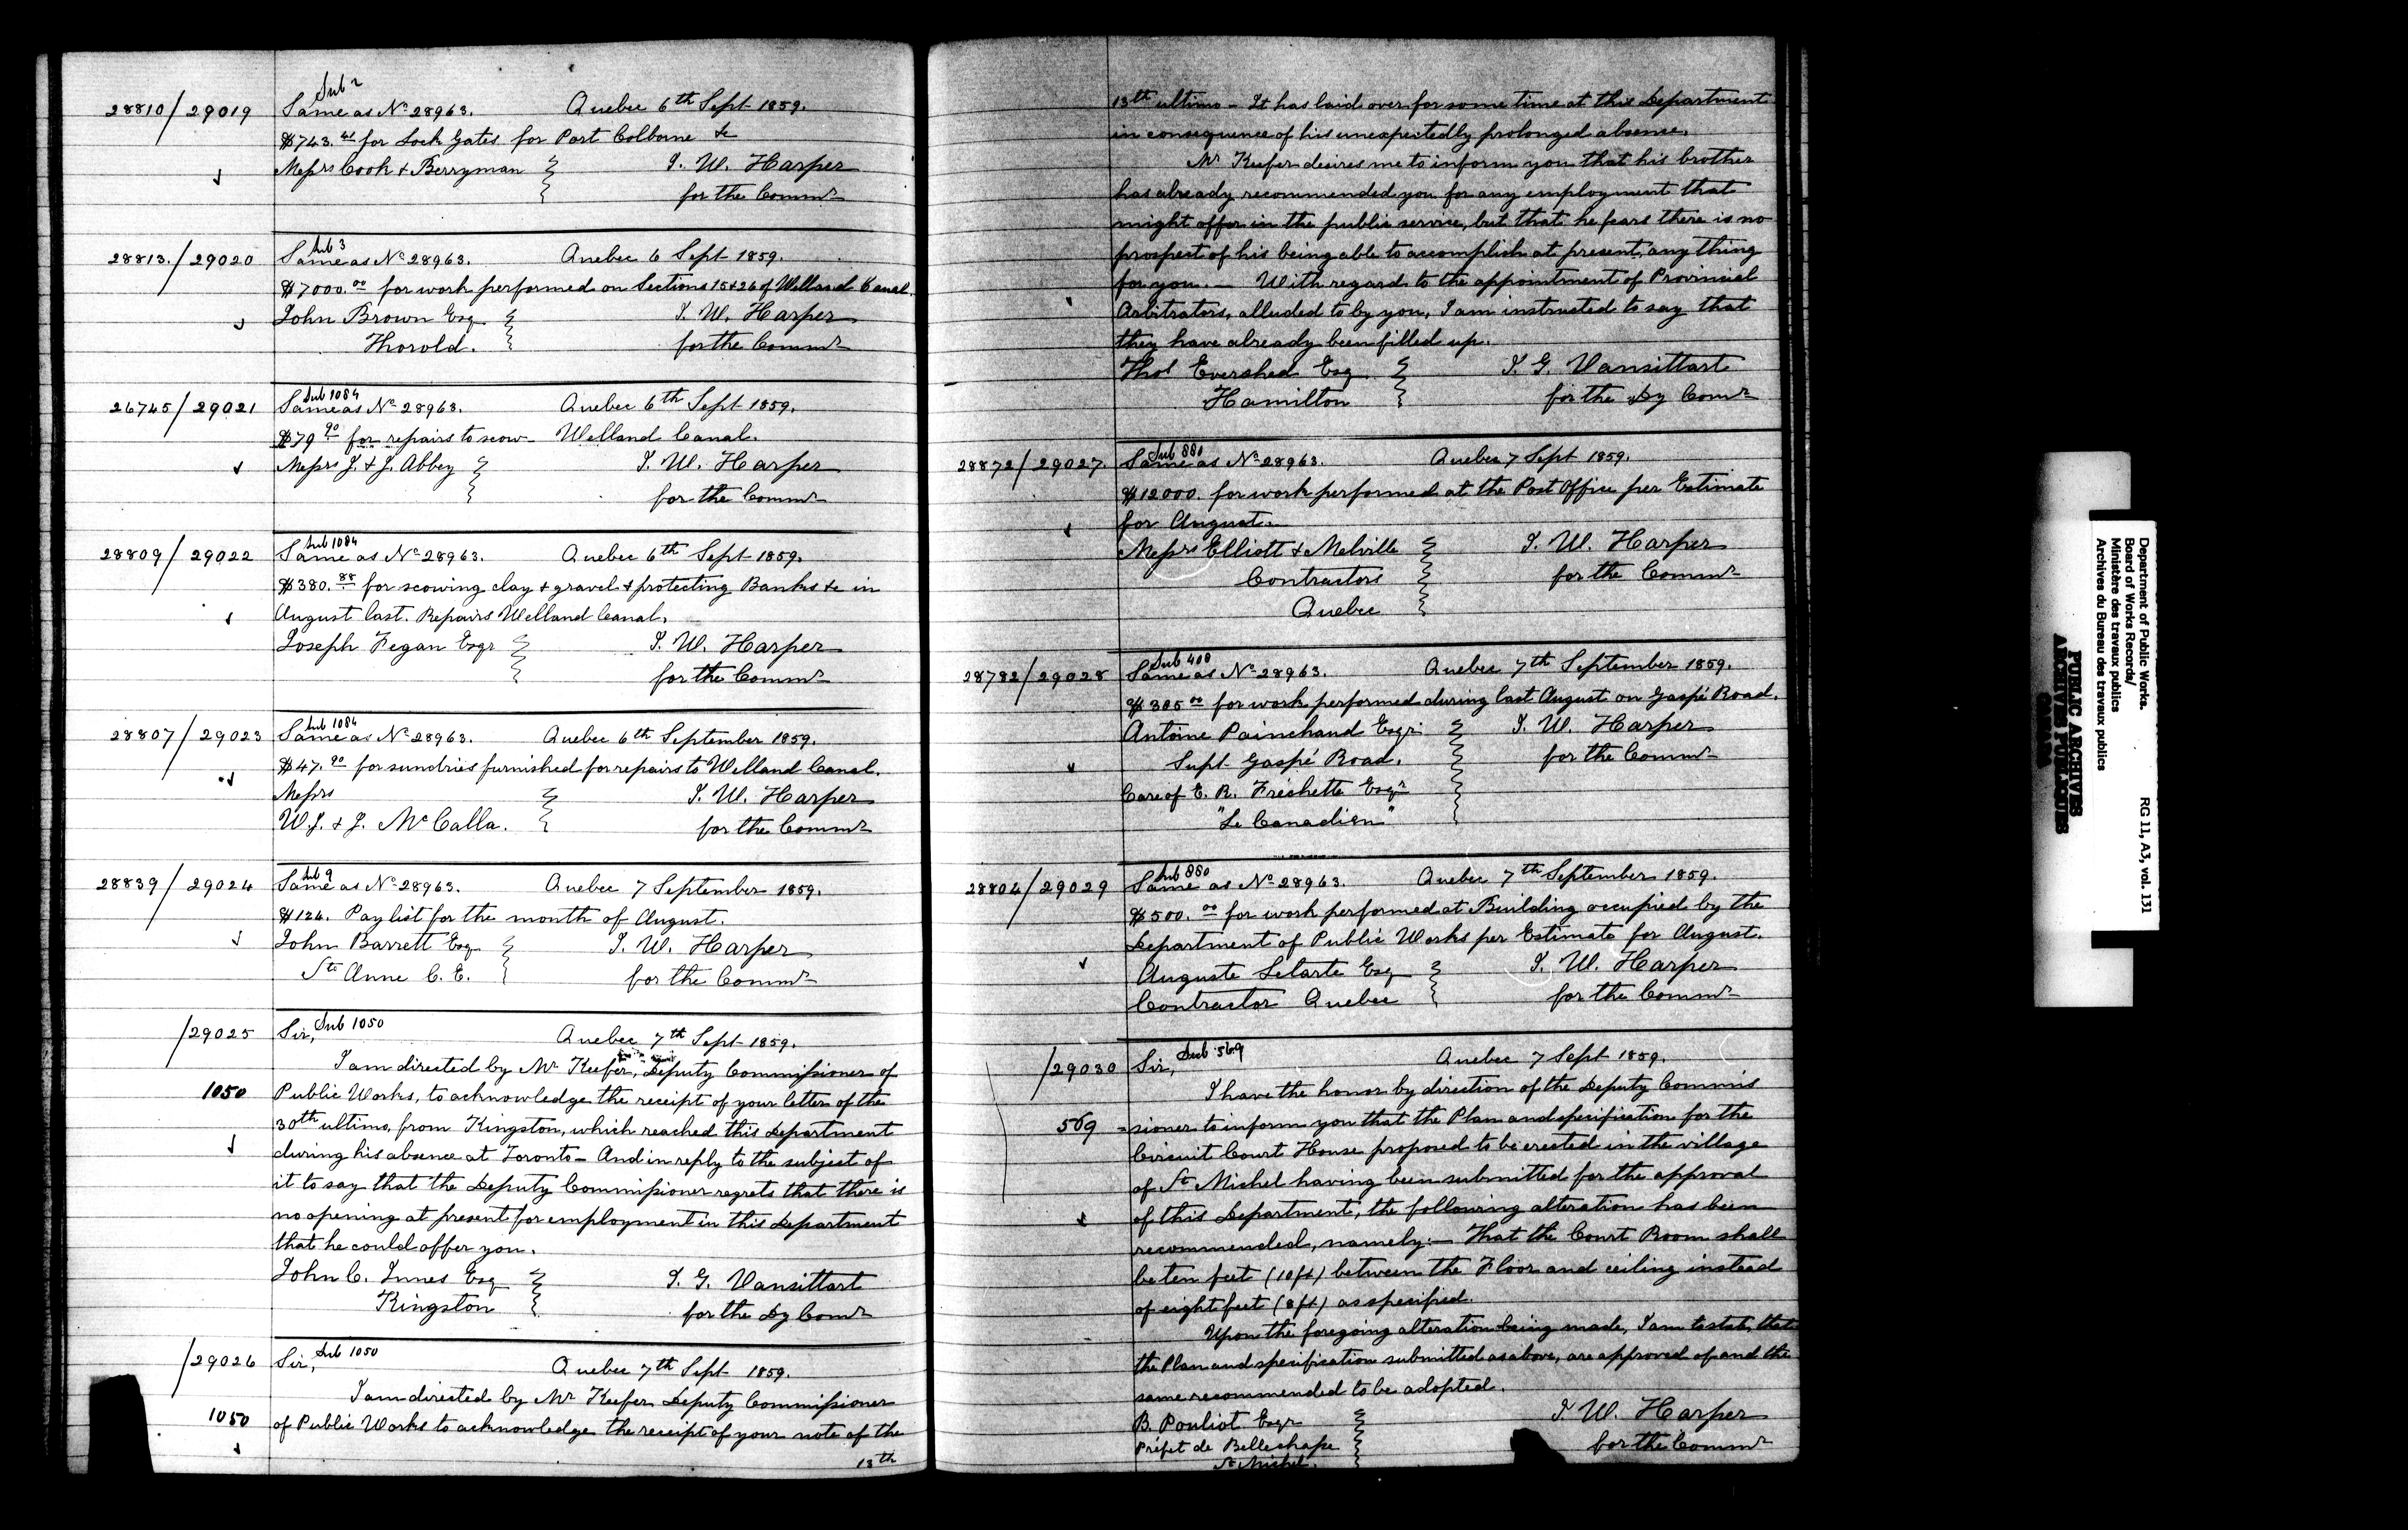 Sub 2
28810/29019 Same as No 28963. Quebec 6th Sept 1859.
$743.41 for Lock Gates for Port Colborne &c
Messrs Cook & Berryman T. W. Harper
for the Commr
Sub 3
28813./29020 Same as No 28963. Quebec 6 Sept 1859.
$7000.00 for work performed on Sections 15 & 26 of Welland Canal.
John Brown Esq T. W. Harper
Thorold. for the Commr
Sub 1084
26745/29021 Same as No 28963. Quebec 6th Sept 1859.
$79.90 for repairs to scow - Welland Canal.
Messrs J. & J. Abbey T. W. Harper
for the Commr
Sub 1084
28809/29022 Same as No 28963. Quebec 6th Sept 1859.
$380.88 for scowing clay & gravel & protecting Banks &c in
August last. Repairs Welland Canal.
Joseph Fegan Esqr T. W. Harper
for the Commr
Sub 1084
28807/29023 Same as No 28963. Quebec 6th September 1859.
$47.90 for sundries furnished for repairs to Welland Canal.
Messrs T. W. Harper
W. J. & J. McCalla. for the Commr
Sub 9
28839/29024 Same as No 28963. Quebec 7 September 1859.
$126. Pay list for the month of August.
John Barrett Esq T. W. Harper
Ste Anne C. E. for the Commr
/29025 Sir, Sub 1050 Quebec 7th Sept 1859.
I am directed by Mr Keefer, Deputy Commissioner of
1050 Public Works, to acknowledge the receipt of your letter of the
30th ultimo, from Kingston, which reached this Department
during his absence at Toronto - And in reply to the subject of
it to say that the Deputy Commissioner regrets that there is
no opening at present for employment in this Department
that he could offer you.
John C. Innes Esq T. G. Vansittart
Kingston for the Dy Comr
/29026 Sir, Sub 1050 Quebec 7th Sept 1859.
I am directed by Mr Keefer Deputy Commissioner
1050 of Public Works to acknowledge the receipt of your note of the
13th
13th ultimo - It has laid over for some time at this Department
in consequence of his unexpectedly prolonged absence.
Mr Keefer desires me to inform you that his brother
has already recommended you for any employment that
might offer in the public service, but that he fears there is no
prospect of his being able to accomplish at present, any thing
for you. - With regard to the appointment of Provincial
Arbitrators, alluded to by you, I am instructed to say that
they have already been filled up.
Thos Evershed Esq T. G. Vansittart
Hamilton for the Dy Comr
Sub 880
28872/29027. Same as No 28963. Quebec 7 Sept 1859.
$12000. for work performed at the Post Office per Estimate
for August.
Messrs Elliott & Melville T. W. Harper
Contractors for the Commr
Quebec
Sub 408
28782/29028 Same as No 28963. Quebec 7th September 1859.
$305.00 for work performed during last August on Gaspé Road.
Antoine Painchaud Esqr. T. W. Harper
Supt Gaspé Road. for the Commr
Care of E. R. Frechette Esqr
"Le Canadien"
Sub 880
28804/29029 Same as No 28963. Quebec 7th September 1859.
$500.00 for work performed at Building occupied by the
Department of Public Works per Estimate for August.
Auguste Letarte Esq T. W. Harper
Contractor Quebec for the Commr
/29030 Sir, Sub 569 Quebec 7 Sept 1859.
I have the honor by direction of the Deputy Commis
569 =sioner to inform you that the Plan and specification for the
Circuit Court House proposed to be erected in the village
of St Michel having been submitted for the approval
of this Department, the following alteration has been
recommended, namely:- That the Court Room shall
be ten feet (10 ft) between the Floor and ceiling instead
of eight feet (8 ft) as specified.
Upon the foregoing alteration being made, I am to state, that
the Plan and specification submitted as above, are approved of and the
same recommended to be adopted.
B. Pouliot Esqr T. W. Harper
Préfet de Bellechasse for the Commr
St Michel.
Department of Public Works.
Board of Works Records/
Ministère des travaux publics
Archives du Bureau des travaux publics
RG 11, A3, vol. 131
PUBLIC ARCHIVES
ARCHIVES PUBLIQUES
CANADA